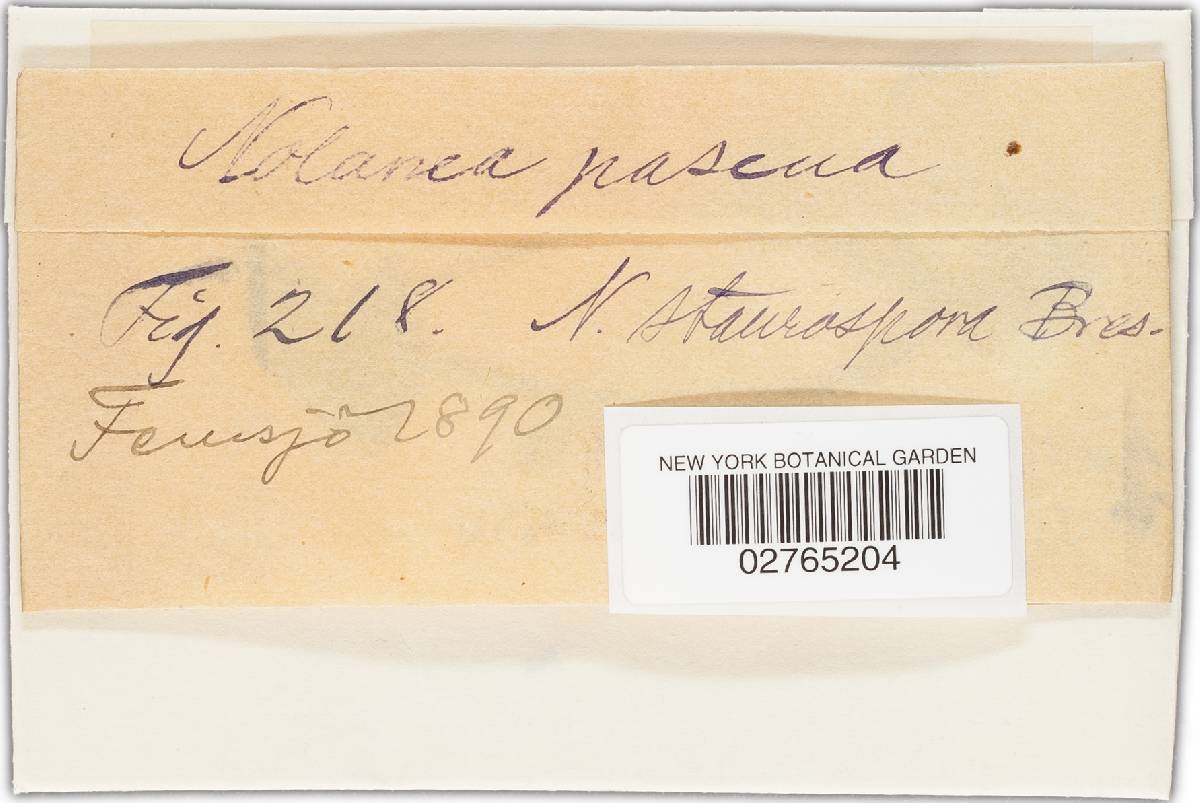 Nolanea pascua
Fig. 218. N. staurospora Bres.
Femsjö 1890
NEW YORK BOTANICAL GARDEN
02765204